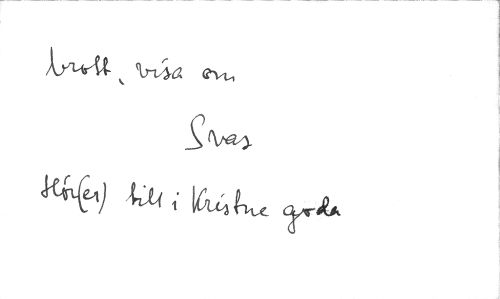 brott, visa om
Svas
Hör(er) till i Kristne goda